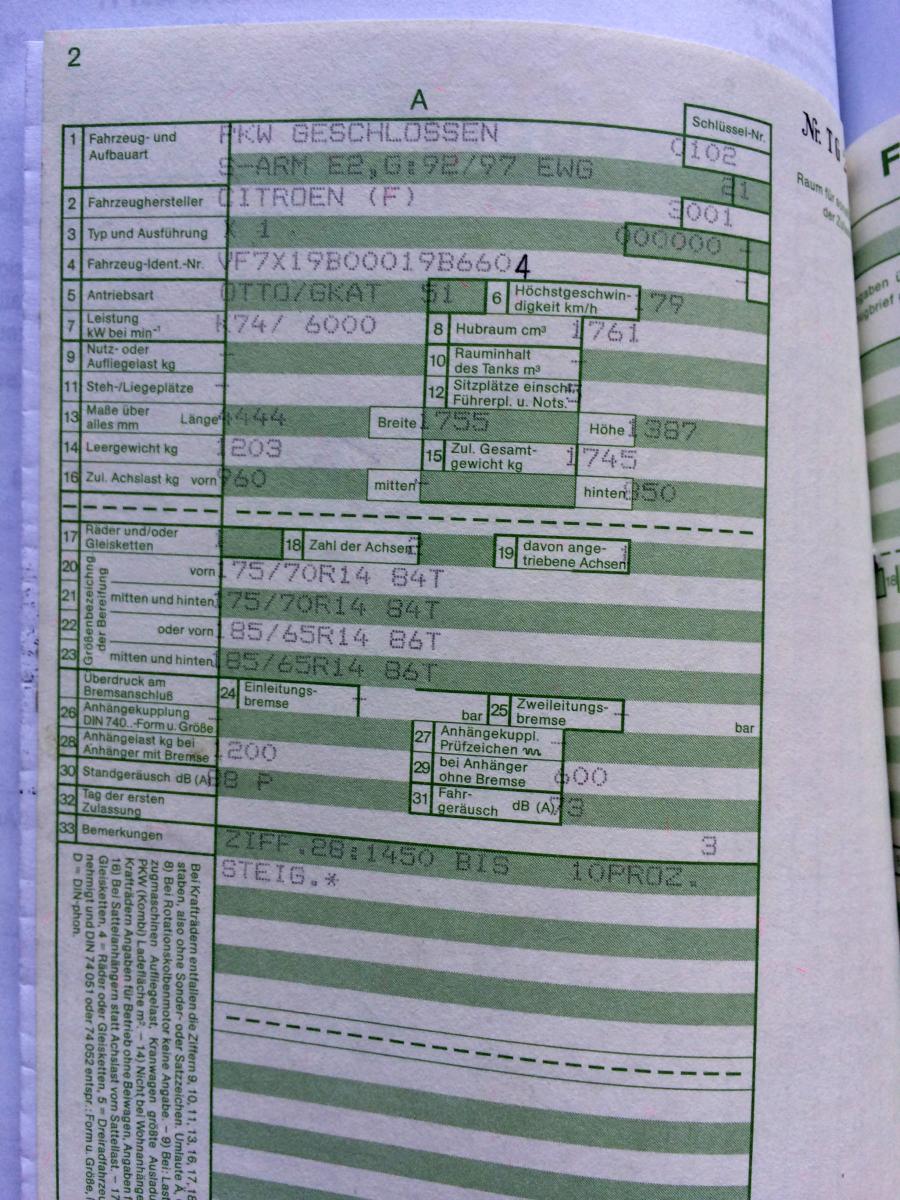 2
A
Schlüssel-Nr.
1 Fahrzeug- und Aufbauart PKW GESCHLOSSEN 0102
S-ARM E2,G:92/97 EWG 21
2 Fahrzeughersteller CITROEN (F) 3001
3 Typ und Ausführung X 1 . 000000 –
4 Fahrzeug-Ident.-Nr. VF7X19B00019B6604
5 Antriebsart OTTO/GKAT 51 6 Höchstgeschwin-digkeit km/h 179
7 Leistung kW bei min⁻¹ K74/ 6000 8 Hubraum cm³ 1761
9 Nutz- oder Aufliegelast kg – 10 Rauminhalt des Tanks m³ –
11 Steh-/Liegeplätze – 12 Sitzplätze einschl. Führerpl. u. Nots.
13 Maße über alles mm Länge 4444 Breite 1755 Höhe 1387
14 Leergewicht kg 1203 15 Zul. Gesamt-gewicht kg 1745
16 Zul. Achslast kg vorn 960 mitten – hinten 850
17 Räder und/oder Gleisketten 1 18 Zahl der Achsen 2 19 davon ange-triebene Achsen 1
Größenbezeichnung der Bereifung
20 vorn 175/70R14 84T
21 mitten und hinten 175/70R14 84T
22 oder vorn 185/65R14 86T
23 mitten und hinten 185/65R14 86T
Überdruck am Bremsanschluß 24 Einleitungs-bremse – bar 25 Zweileitungs-bremse – bar
26 Anhängekupplung DIN 740..-Form u. Größe 27 Anhängekuppl. Prüfzeichen –
28 Anhängelast kg bei Anhänger mit Bremse 1200 29 bei Anhänger ohne Bremse 600
30 Standgeräusch dB (A) 88 P 31 Fahr-geräusch dB (A) 73
32 Tag der ersten Zulassung 3
33 Bemerkungen ZIFF.28:1450 BIS 10PROZ.
STEIG.*
Bei Krafträdern entfallen die Ziffern 9, 10, 11, 13, 16, 17, 18
staben, also ohne Sonder- oder Satzzeichen. Umlaute Ä,
8) Bei Rotationskolbenmotor keine Angabe. – 9) Bei: Last
zugmaschinen Aufliegelast, Kranwagen größte Ausladu
PKW (Kombi) Ladefläche m². – 14) Nicht bei Wohnanhänge
Krafträdern Angaben für Betrieb ohne Beiwagen, Angaben f
16) Bei Sattelanhängern statt Achslast vorn Sattellast. – 17
Gleisketten, 4 = Räder oder Gleisketten, 5 = Dreiradfahrzeu
nehmigt und DIN 74 051 oder 74 052 entspr.: Form u. Größe,
D = DIN-phon.
Nr. TG
Raum für
der
F
gaben
brief
18